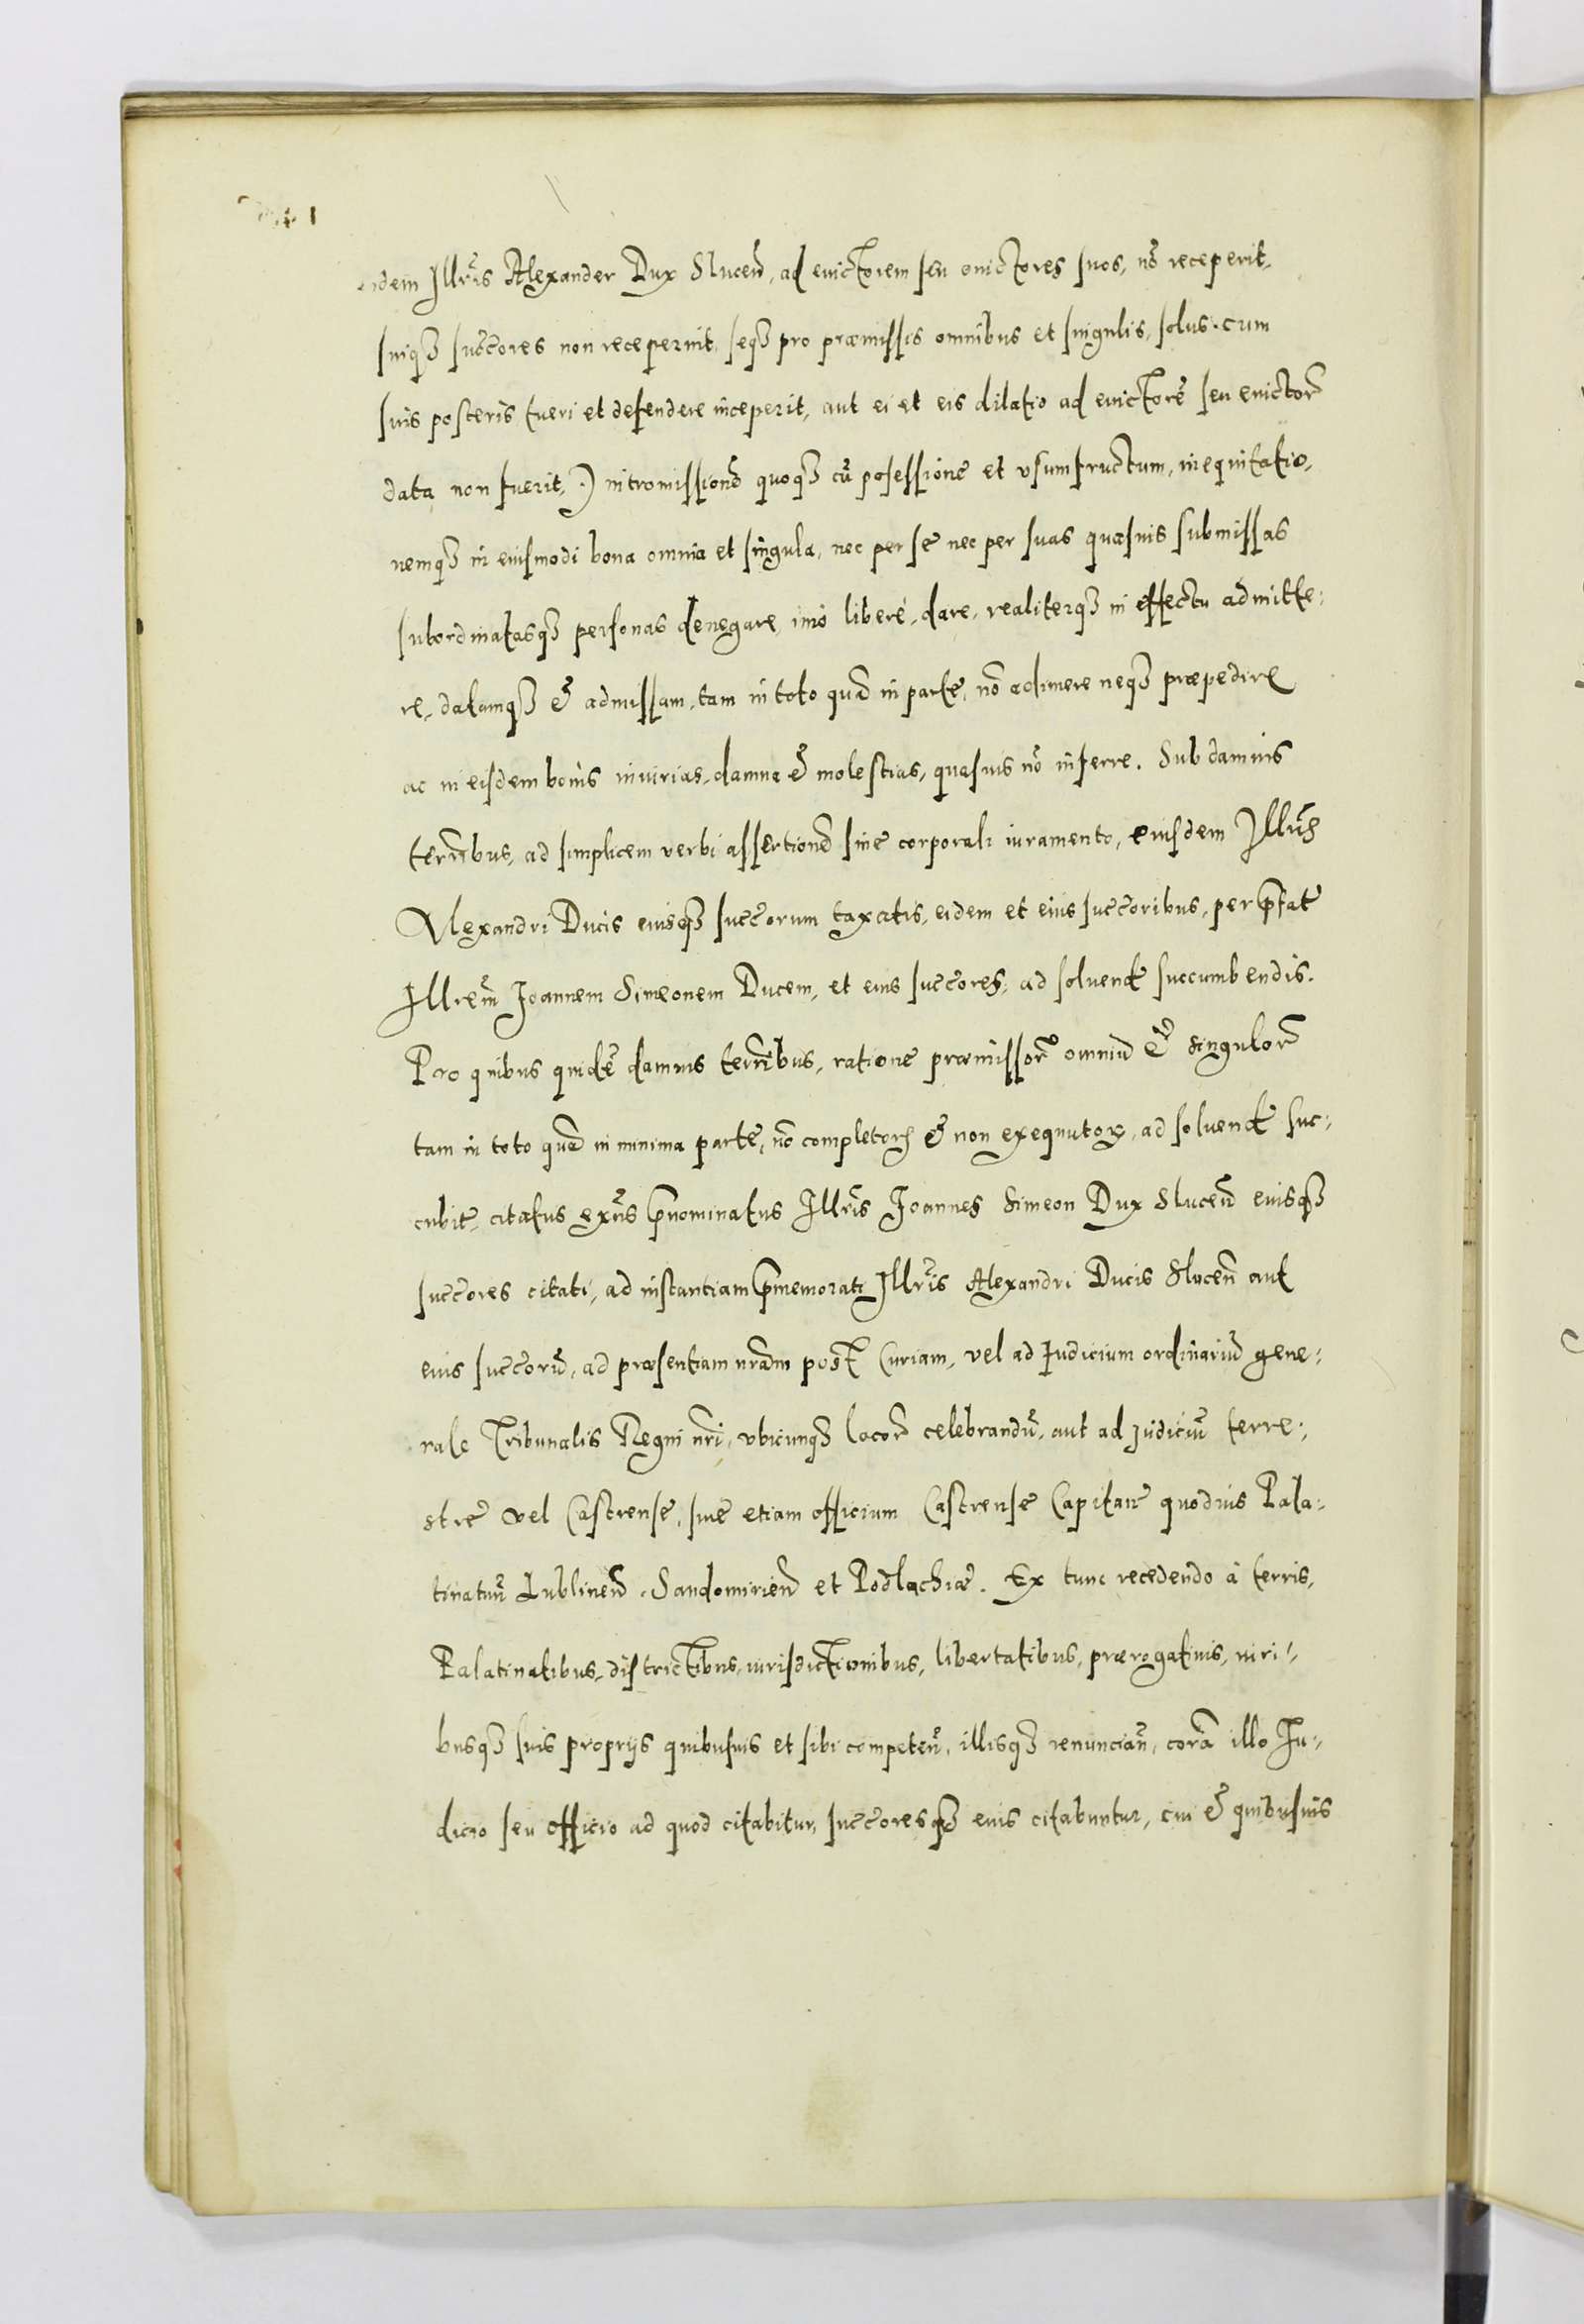 idem Illris Alexander Dux Slucen̄, ad euictorem seu euictores suos, nō receperit,
suiqȝ succores non receperint, seqȝ pro præmissis omnibus et singulis, solus cum
suis posteris tueri et defendere inceperit, aut ei et eis dilatio ad euictorē seu euictor̄
data non fuerit,·) intromissionē quoqȝ cū posessione et vsumfructum, inequitatio,
nemqȝ in eiusmodi bona omnia et singula, nec per se nec per suas quasuis submissas
subordinatasqȝ personas denegare, imò liberè, dare, realiterqȝ in effectu admitte:
re, datamqȝ & admissam, tam in toto quā in parte, nō adimere neqȝ præpedire
ac in eisdem bonis iniurias, damna & molestias, quasuis nō inferre. Sub damnis
terrībus, ad simplicem verbi assertionē sine corporali iuramento, eiusdem Illris
Alexandri Ducis eiusqȝ succorum taxatis, eidem et eius succoribus, per p̄fat
Illrem̄ Joannem Simeonem Ducem, et eius succores, ad soluend succumbendis.
Pro quibus quidē damnis terrībus, ratione præmissor̄ omniū & singulor̄
tam in toto quā in minima parte, nō completorȝ & non exequutorȝ, ad soluend suc:
cubit, citatus exn̄s p̄nominatus Illris Joannes Simeon Dux Slucen̄ eiusqȝ
succores citati, ad instantiam p̄memorati Illris Alexandri Ducis Slucen̄ aut
eius succorū, ad præsentiam nram̄ post Curiam, vel ad Iudicium ordinariū gene:
rale Tribunalis Regni nrī, vbicunqȝ locor̄ celebrandū, aut ad Judiciū terre:
stre vel Castrense, siue etiam officium Castrense Capitan̄ quoduis Pala:
tinatuū Lublinen̄, Sandomirien̄ et Podlachiæ. Ex tunc recedendo à terris,
Palatinatibus, districtibus, iurisdictionibus, libertatibus, prærogatiuis, iuri:
busqȝ suis proprijs quibusuis et sibi competen̄, illisqȝ renuncian̄, corā illo Iu:
dicio seu officio ad quod citabitur, succoresqȝ eius citabuntur, cui & quibusuis